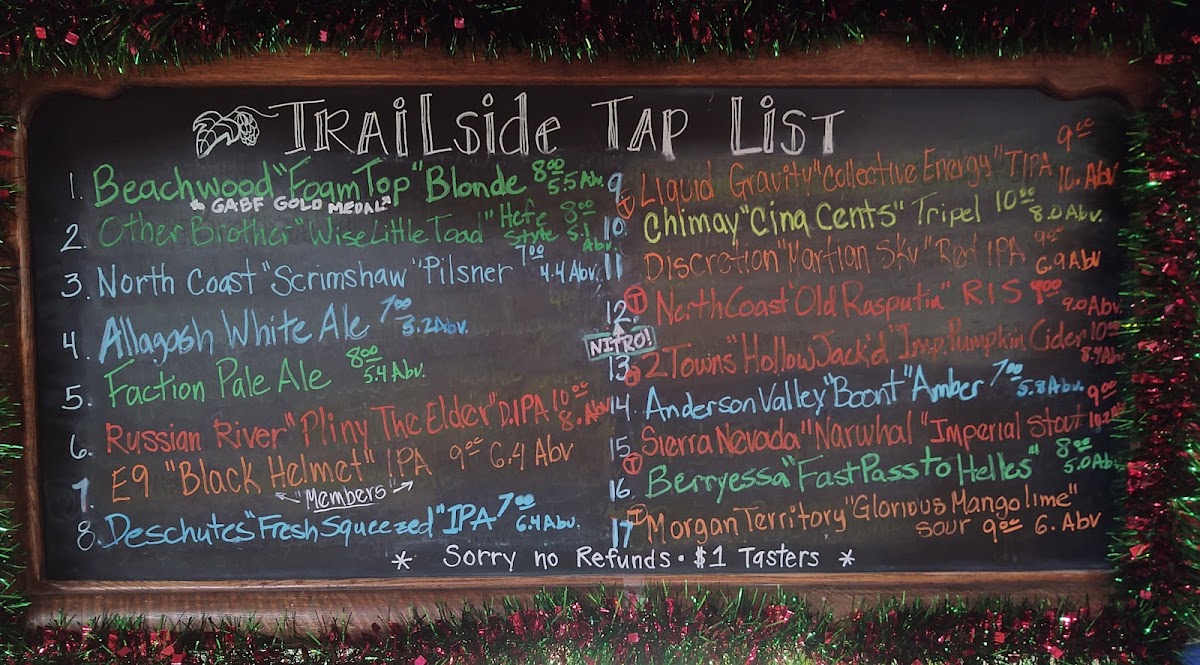 TRAILside TAP LIST
1. Beachwood "Foam Top" Blonde 8.00 5.5 Abv.
* GABF GOLD MEDAL *
2. Other Brother "Wise Little Toad" Hefe Style 8.00 5.1 Abv.
3. North Coast "Scrimshaw" Pilsner 7.00 4.4 Abv.
4. Allagash White Ale 7.00 5.2 Abv.
5. Faction Pale Ale 8.00 5.4 Abv.
6. Russian River "Pliny The Elder" D.IPA 10.00 8. Abv
7. E9 "Black Helmet" IPA 9.00 6.4 Abv
"Members"
8. Deschutes "Fresh Squeezed" IPA 7.00 6.4 Abv.
9. Liquid Gravity "Collective Energy" TIPA 9.00 10. Abv
T
10. Chimay "Cinq Cents" Tripel 10.00 8.0 Abv.
11 Discretion "Martian Sky" Red IPA 9.00 6.9 Abv
12. T North Coast "Old Rasputin" RIS 9.00 9.0 Abv.
NITRO!
13. T 2 Towns "Hollow Jack'd" Imp. Pumpkin Cider 10.00 Abv.
14. Anderson Valley "Boont" Amber 7.00 5.8 Abv.
15. Sierra Nevada "Narwhal" Imperial Stout 9.00
T
16. Berryessa "Fast Pass to Helles" 8.00 5.0 Abv.
17 T Morgan Territory "Glorious Mango lime"
sour 9.00 6. Abv
* Sorry no Refunds • $1 Tasters *